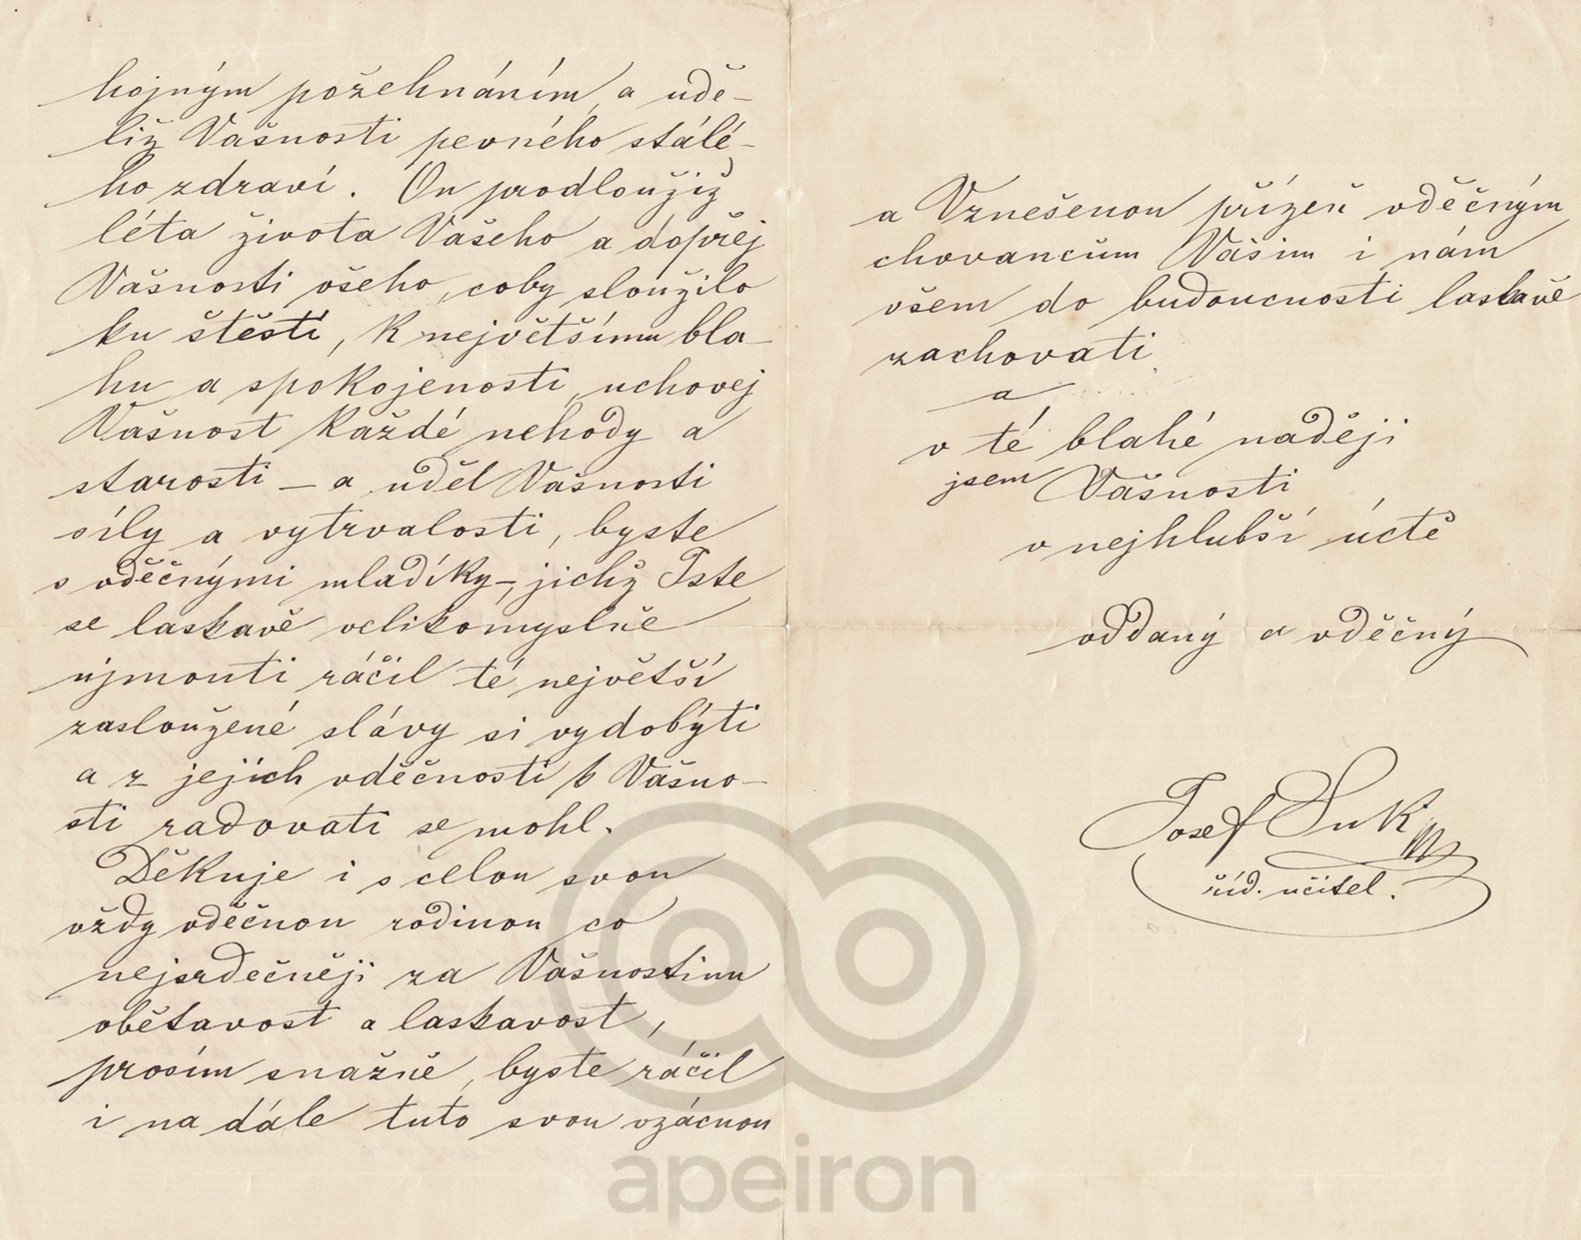 hojným požehnáním, a udě-
liž Vašnosti pevného stálé-
ho zdraví. On prodloužiž
léta života Vašeho a dopřej
Vašnosti všeho, coby sloužilo
ku štěstí, k největšímu bla-
hu a spokojenosti, uchovej
Vašnost každé nehody a
starosti – a uděl Vašnosti
síly a vytrvalosti, byste
s vděčnými mladíky –, jichž Jste
se laskavě velikomyslně
ujmouti ráčil té největší
zasloužené slávy si vydobýti
a z jejich vděčnosti k Vašno-
sti radovati se mohl.
Děkuje i s celou svou
vždy vděčnou rodinou co
nejsrdečněji za Vašnostinu
obětavost a laskavost,
prosím snažně, byste ráčil
i na dále tuto svou vzácnou
a Vznešenou přízeň vděčným
chovancům Vašim i nám
všem do budoucnosti laskavě
zachovati.
a
v té blahé naději
jsem Vašnosti
v nejhlubší úctě
oddaný a vděčný
Josef Suk
říd. učitel.
apeiron